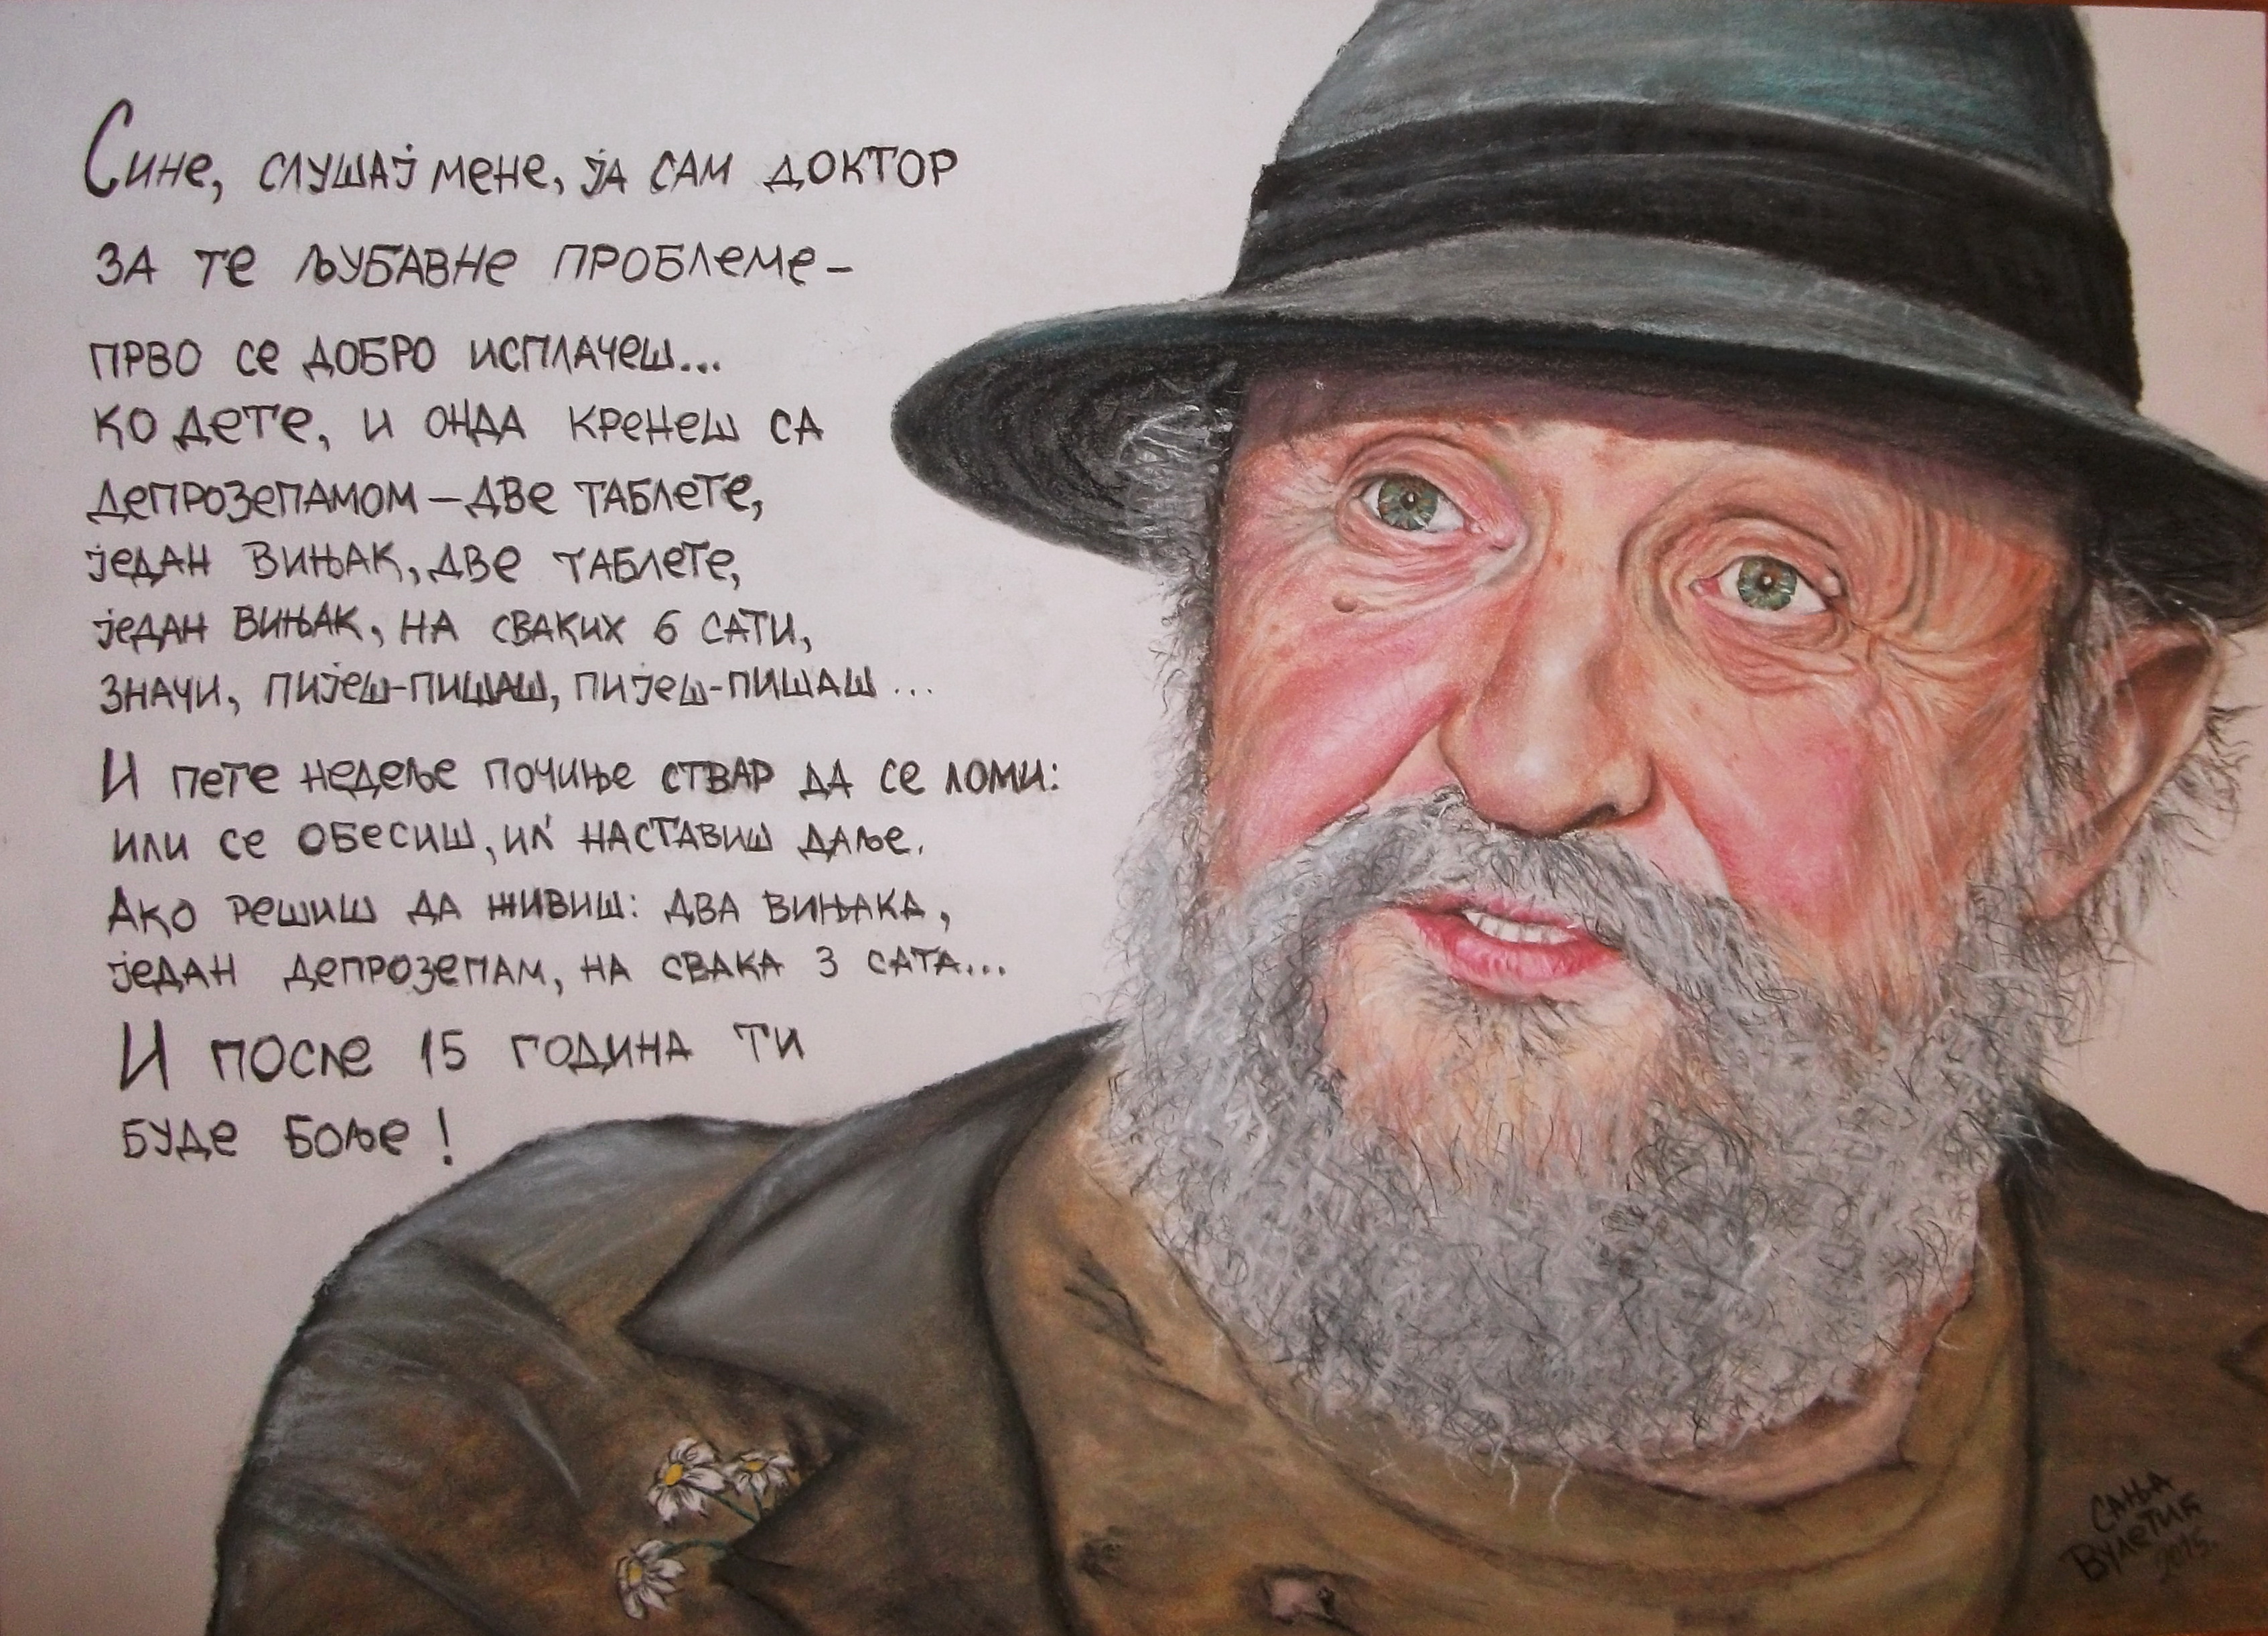 Сине, слушај мене, ја сам доктор
за те љубавне проблеме-
прво се добро исплачеш...
ко дете, и онда кренеш са
депрозепамом - две таблете,
један вињак, две таблете,
један вињак, на сваких 6 сати,
значи, пијеш-пишаш, пијеш-пишаш...
И пете недеље почиње ствар да се ломи:
или се обесиш, ил' наставиш даље.
Ако решиш да живиш: два вињака,
један депрозепам, на свака 3 сата...
И после 15 година ти
буде боље!
Сања
Вулетић
2015.